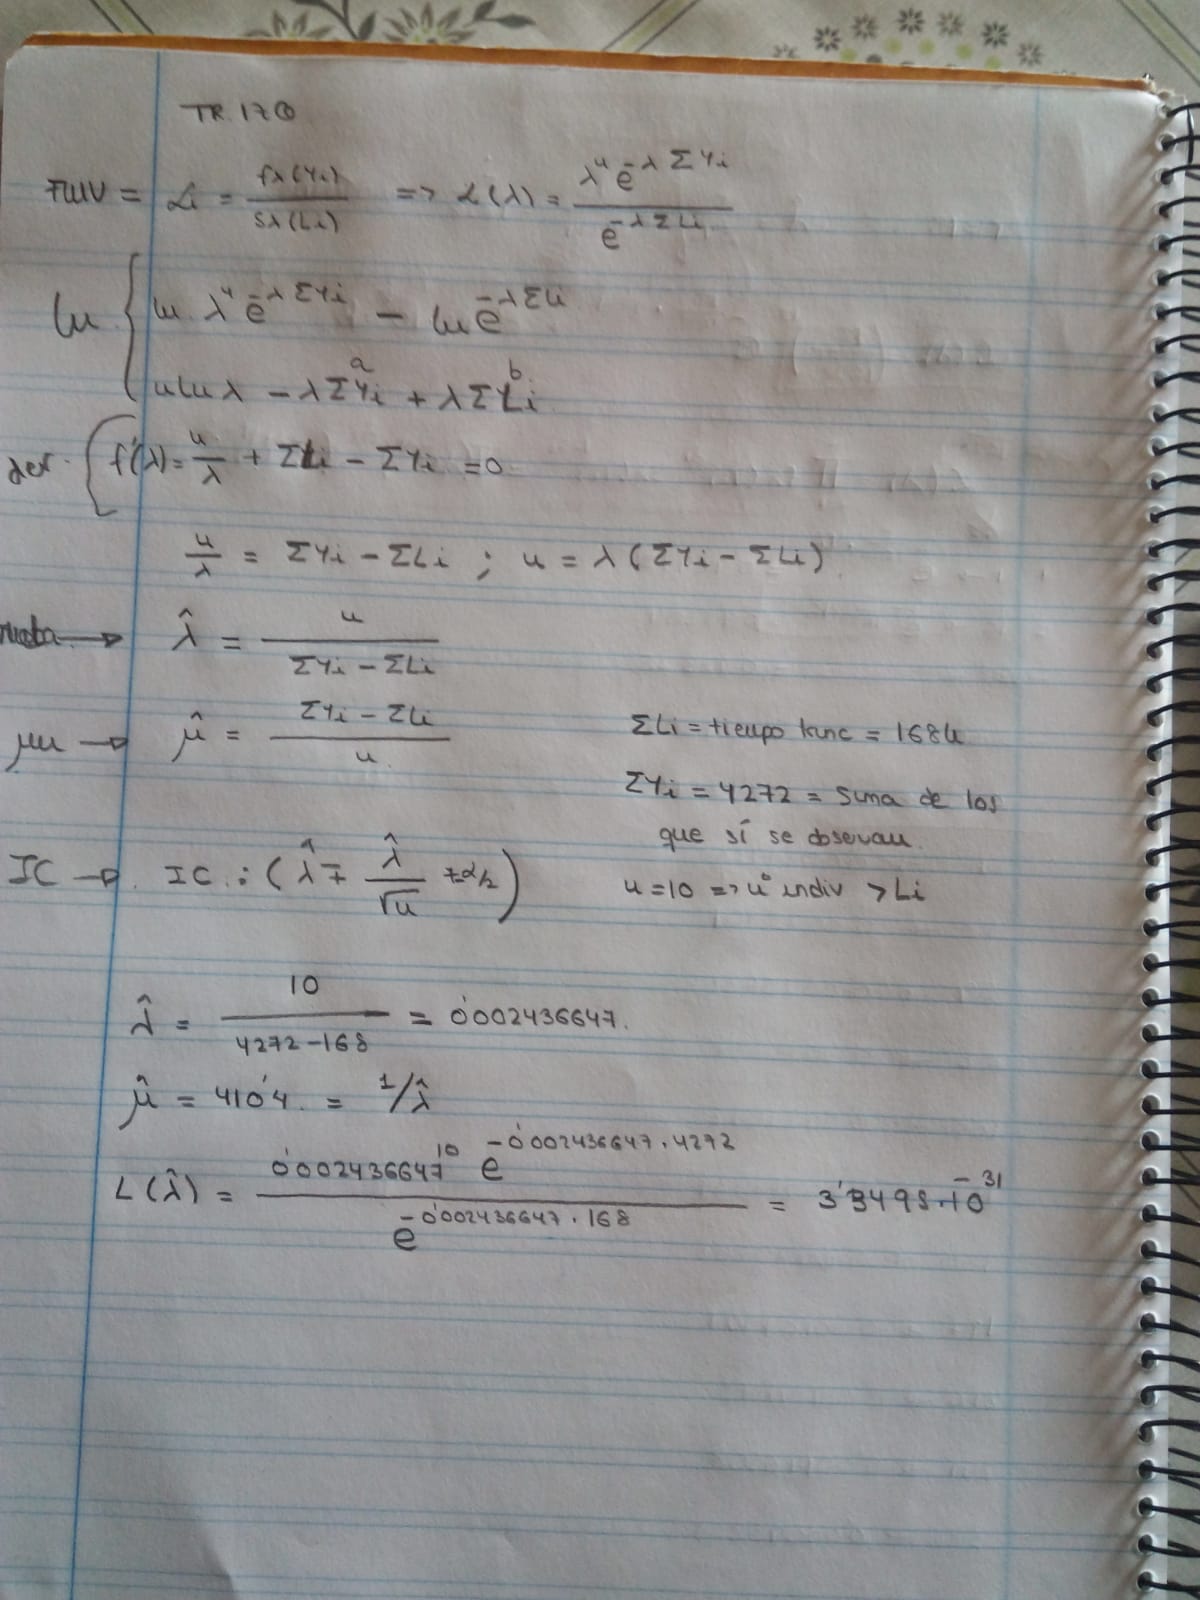 TR. 17①
FMV = Li = fλ(Yi) / Sλ(Li) => L(λ) = λⁿ e^(-λΣYi) / e^(-λΣLi)
ln { ln λⁿ e^(-λΣYi) - ln e^(-λΣLi)
n ln λ - λΣYi + λΣLi
der. { f'(λ) = n/λ + ΣLi - ΣYi = 0
n/λ = ΣYi - ΣLi ; n = λ(ΣYi - ΣLi)
→ λ̂ = n / (ΣYi - ΣLi)
→ μ̂ = (ΣYi - ΣLi) / n
ΣLi = tiempo trunc = 168h
ΣYi = 4272 = Suma de los
que sí se observan
n = 10 => nº indiv > Li
IC → IC.: (λ̂ ∓ λ̂/√n zα/2)
λ̂ = 10 / (4272-168) = 0'002436647.
μ̂ = 410'4. = 1/λ̂
L(λ̂) = 0'002436647¹⁰ e^(-0'002436647.4272) / e^(-0'002436647.168) = 3'3498.10⁻³¹